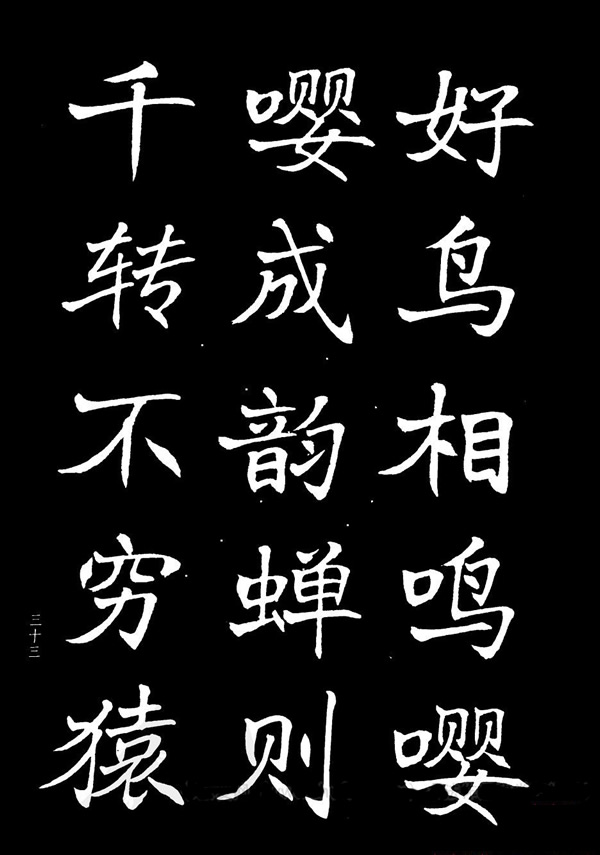 好鸟相鸣嘤
嘤成韵蝉则
千转不穷猿
三十三